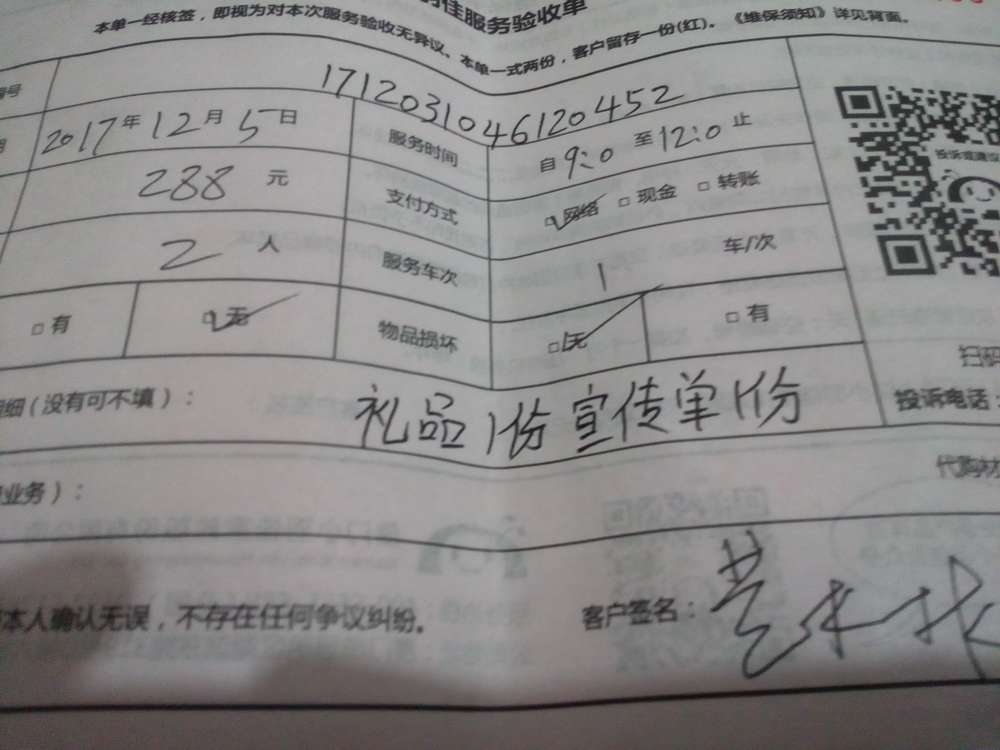 佳服务验收单
本单一经核签，即视为对本次服务验收无异议。本单一式两份，客户留存一份(红)。《维保须知》详见背面。
号 1712031046120452
2017年12月5日 服务时间 自9:0至12:0止
288元 支付方式 □网络 □现金 □转账
2人 服务车次 1 车/次
□有 □无 物品损坏 □无 □有
细(没有可不填)： 礼品1份 宣传单1份
扫码
投诉电话：
业务)： 代购材
本人确认无误，不存在任何争议纠纷。 客户签名：